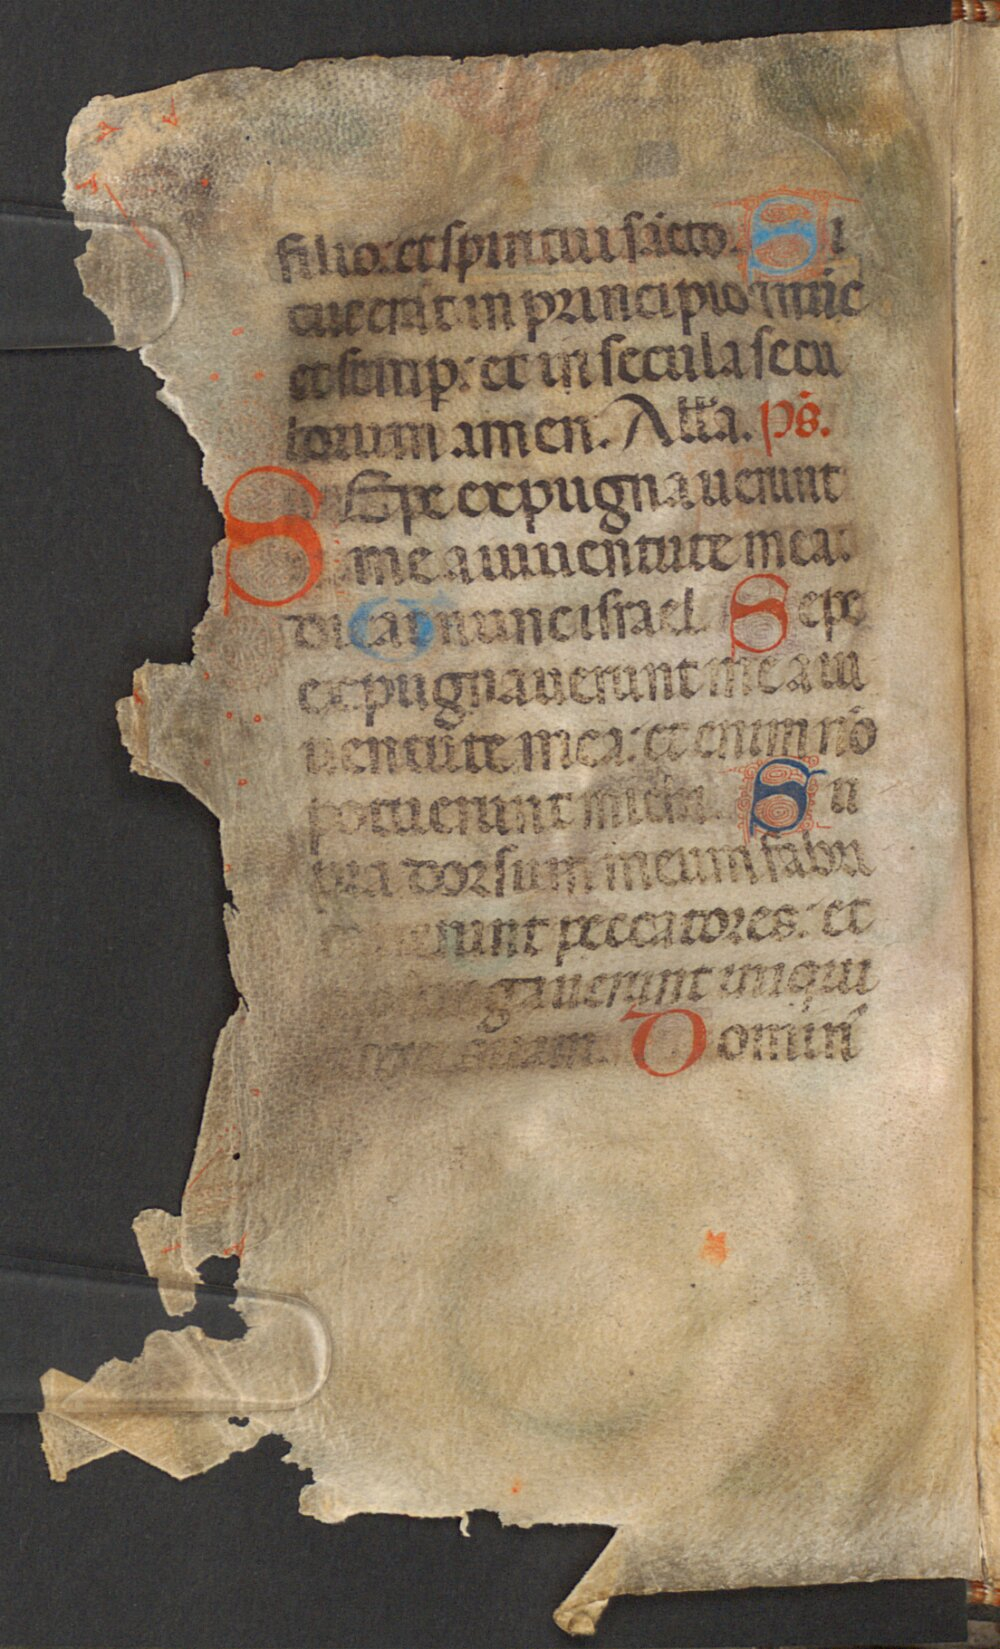 filio: et spiritui sācto. Si
cut erat in principio ⁊ nūc
et semp: et in secula secu
lorum amen. Alła. ps.
SEpe expugnauerunt
me a iuuentute mea:
dicat nunc israel. Sepe
expugnauerunt me a iu
uentute mea: et enim nō
potuerunt michi. Su
pra dorsum meum fabri
erunt peccatores: et
gauerunt iniqui
Domin̄